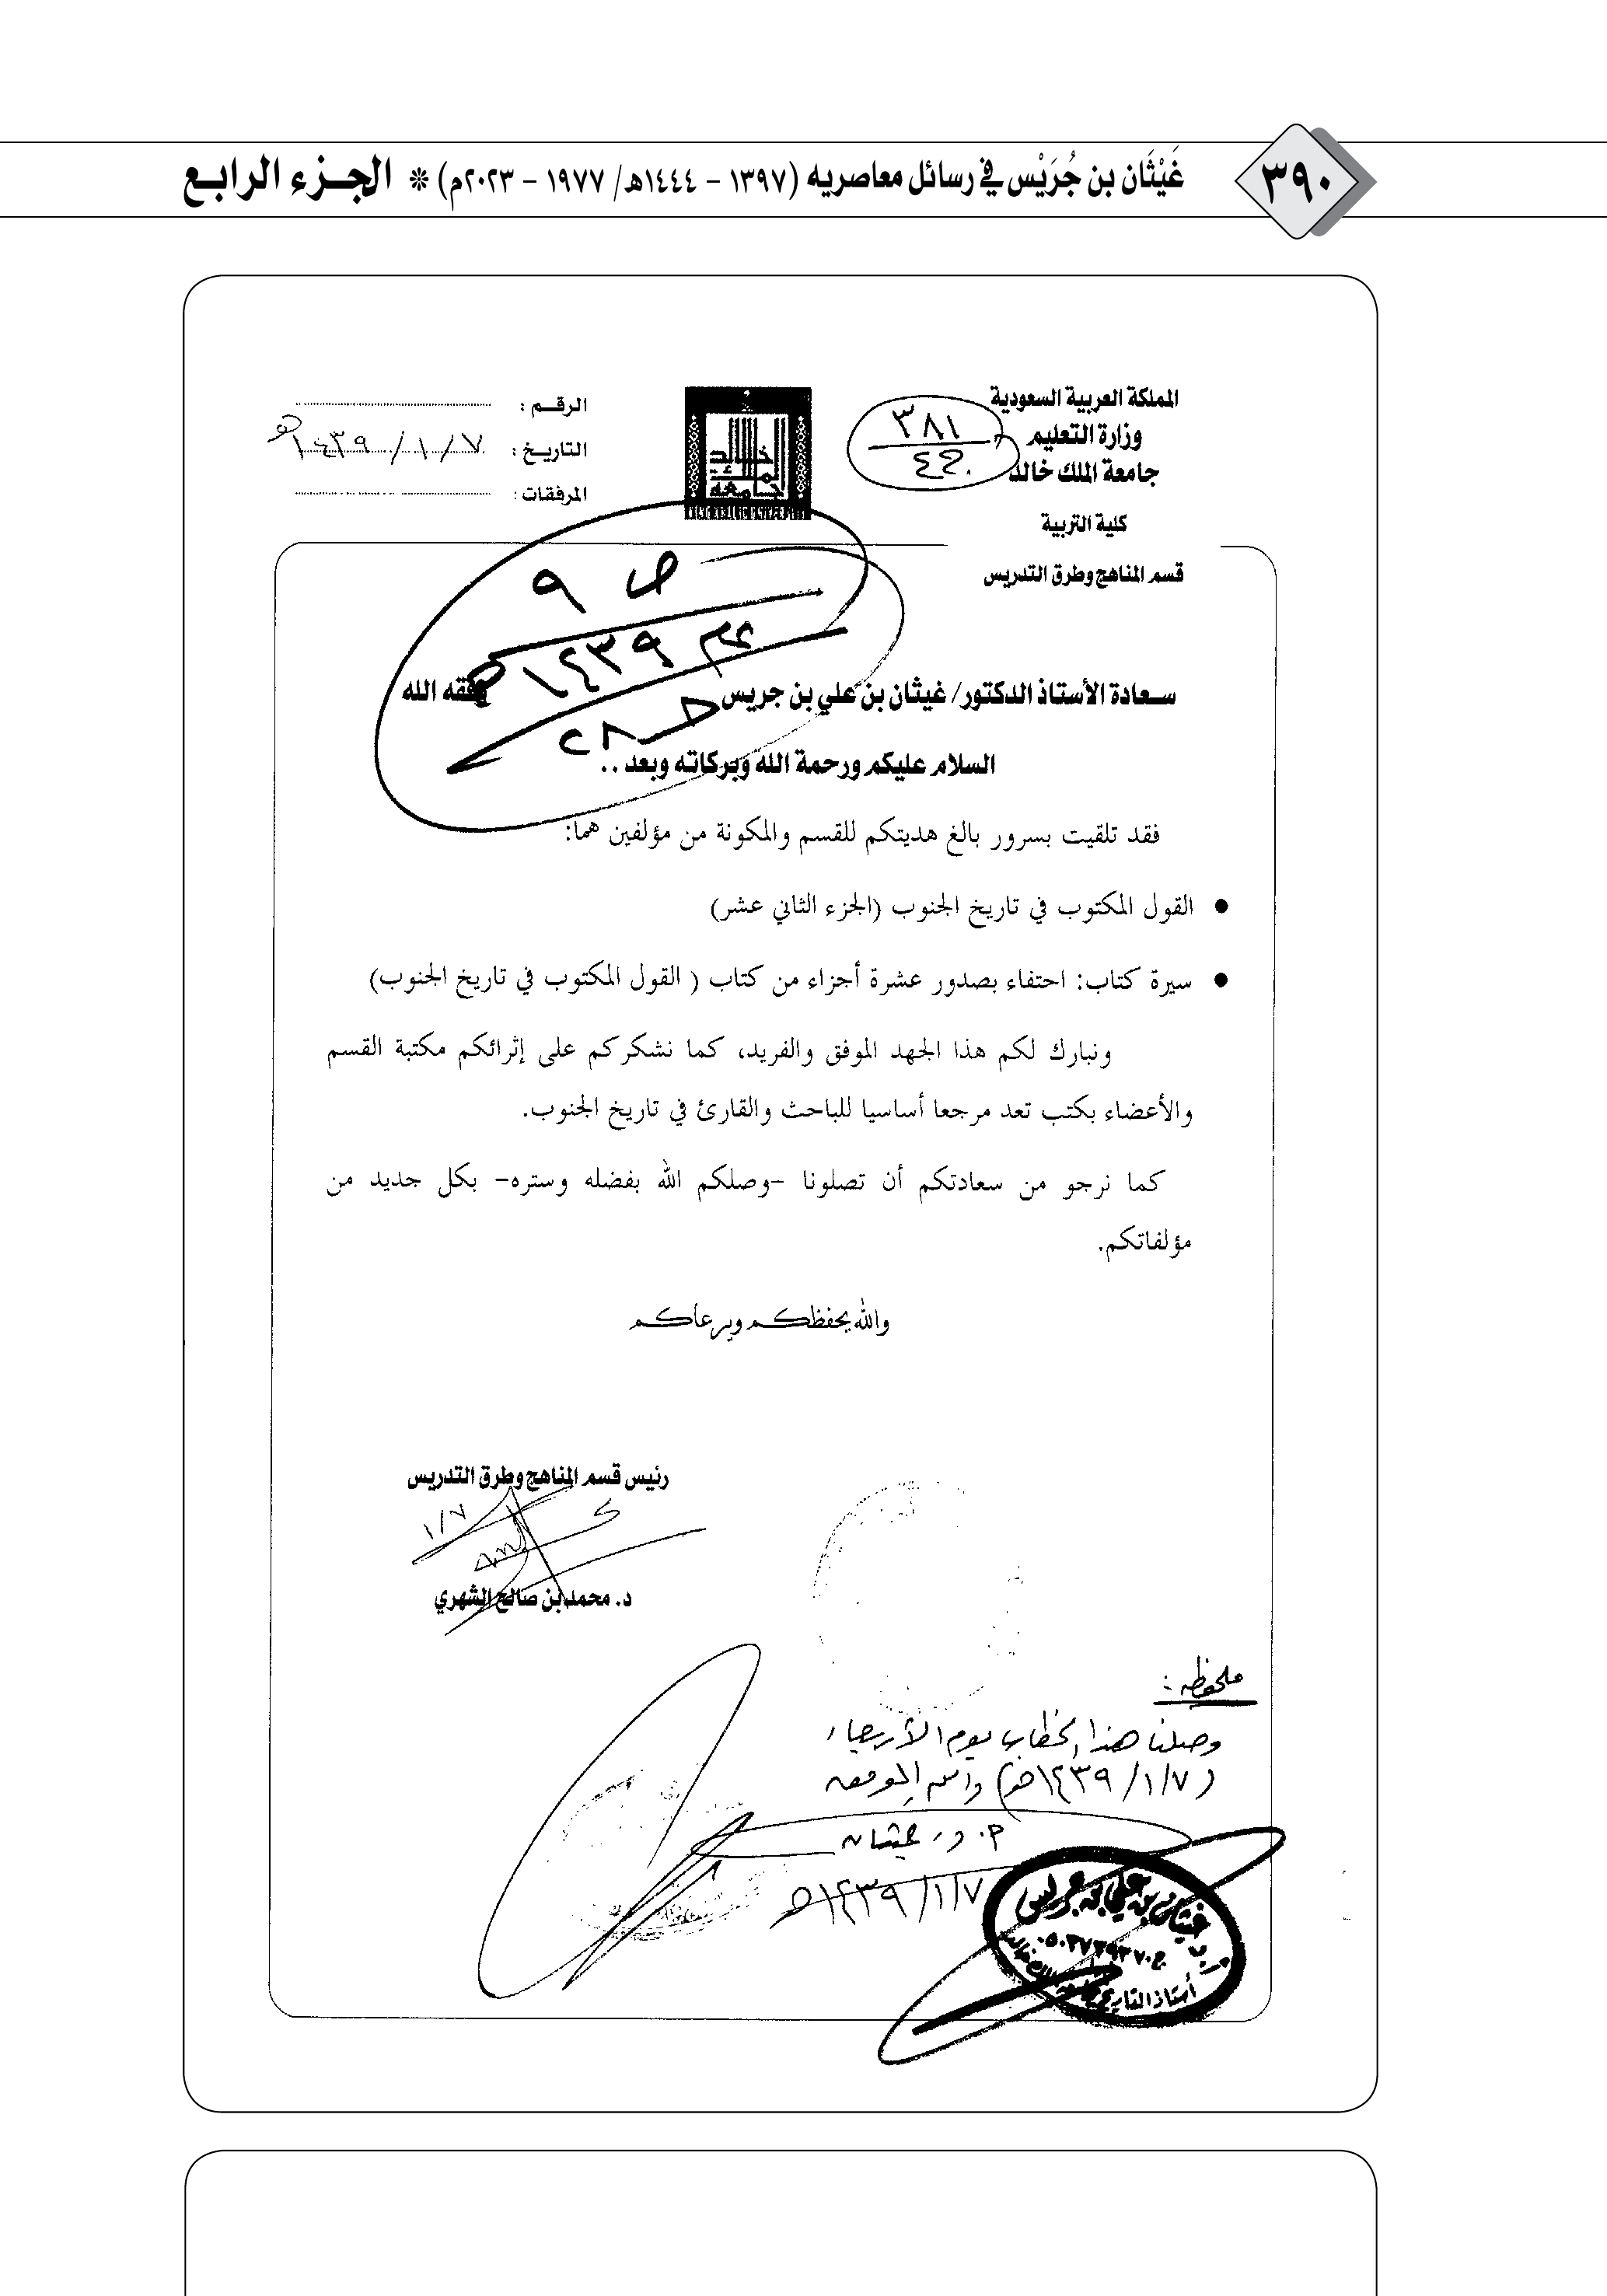 ٣٩٠
غَيْثَان بن جُرَيْس في رسائل معاصريه (١٣٩٧ - ١٤٤٤هـ/ ١٩٧٧ - ٢٠٢٣م) * الجـزء الرابـع
المملكة العربية السعودية
وزارة التعليم
جامعة الملك خالد
كلية التربية
قسم المناهج وطرق التدريس
٣٨١
KING KHALID UNIVERSITY
الرقـم :
التاريـخ : ١٤٣٩/١/٧هـ
المرفقات :
ص ٩
١٤٣٩
سـعادة الأستاذ الدكتور/ غيثان بن علي بن جريس وفقه الله
السلام عليكم ورحمة الله وبركاته وبعد ..
فقد تلقيت بسرور بالغ هديتكم للقسم والمكونة من مؤلفين هما:
● القول المكتوب في تاريخ الجنوب (الجزء الثاني عشر)
● سيرة كتاب: احتفاء بصدور عشرة أجزاء من كتاب ( القول المكتوب في تاريخ الجنوب)
ونبارك لكم هذا الجهد الموفق والفريد، كما نشكركم على إثرائكم مكتبة القسم
والأعضاء بكتب تعد مرجعا أساسيا للباحث والقارئ في تاريخ الجنوب.
كما نرجو من سعادتكم أن تصلونا -وصلكم الله بفضله وستره- بكل جديد من
مؤلفاتكم.
والله يحفظكم ويرعاكم
رئيس قسم المناهج وطرق التدريس
١/٧
د. محمد بن صالح الشهري
ملحوظة :
وصلنا هذا الخطاب يوم الأربعاء
(١٤٣٩/١/٧هـ) والله الموفق
أ. د. غيثان
١٤٣٩/١/٧هـ
غيثان بن علي بن جريس
أستاذ التاريخ